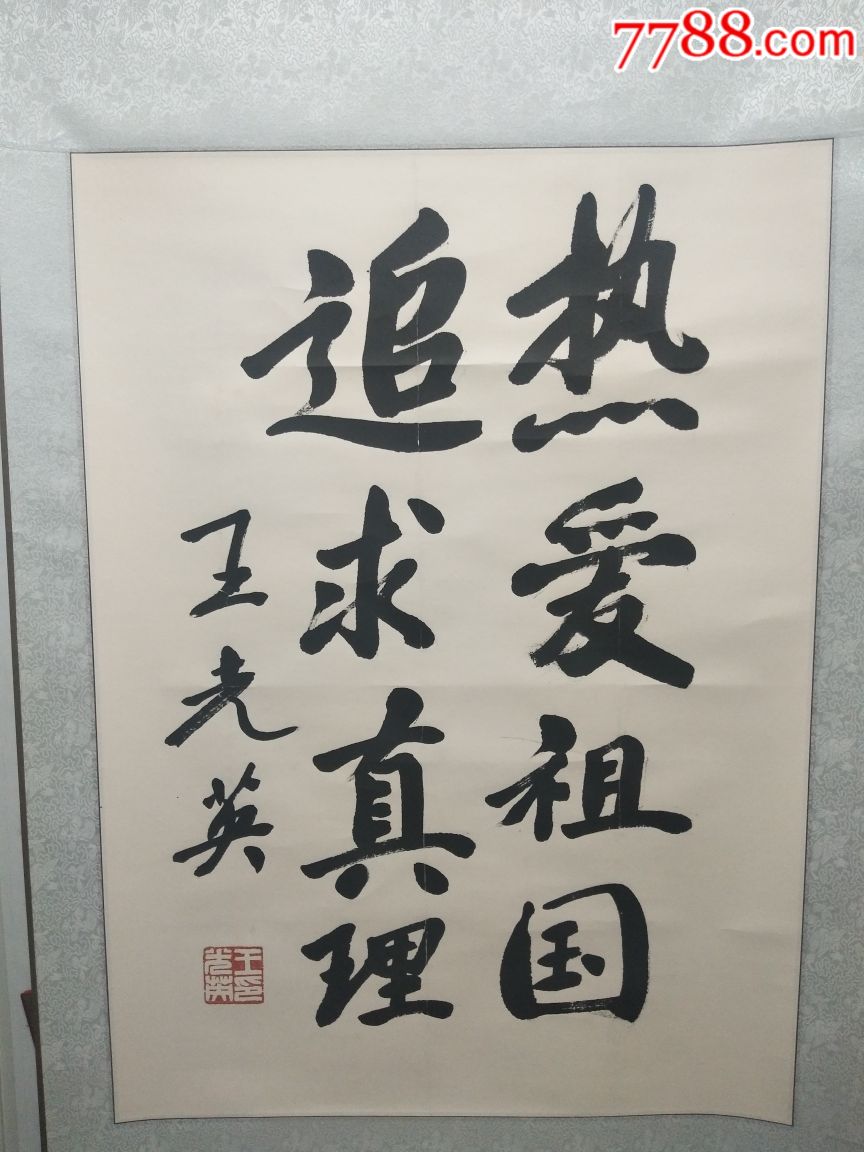 7788.com
热爱祖国
追求真理
王光英
王光英印